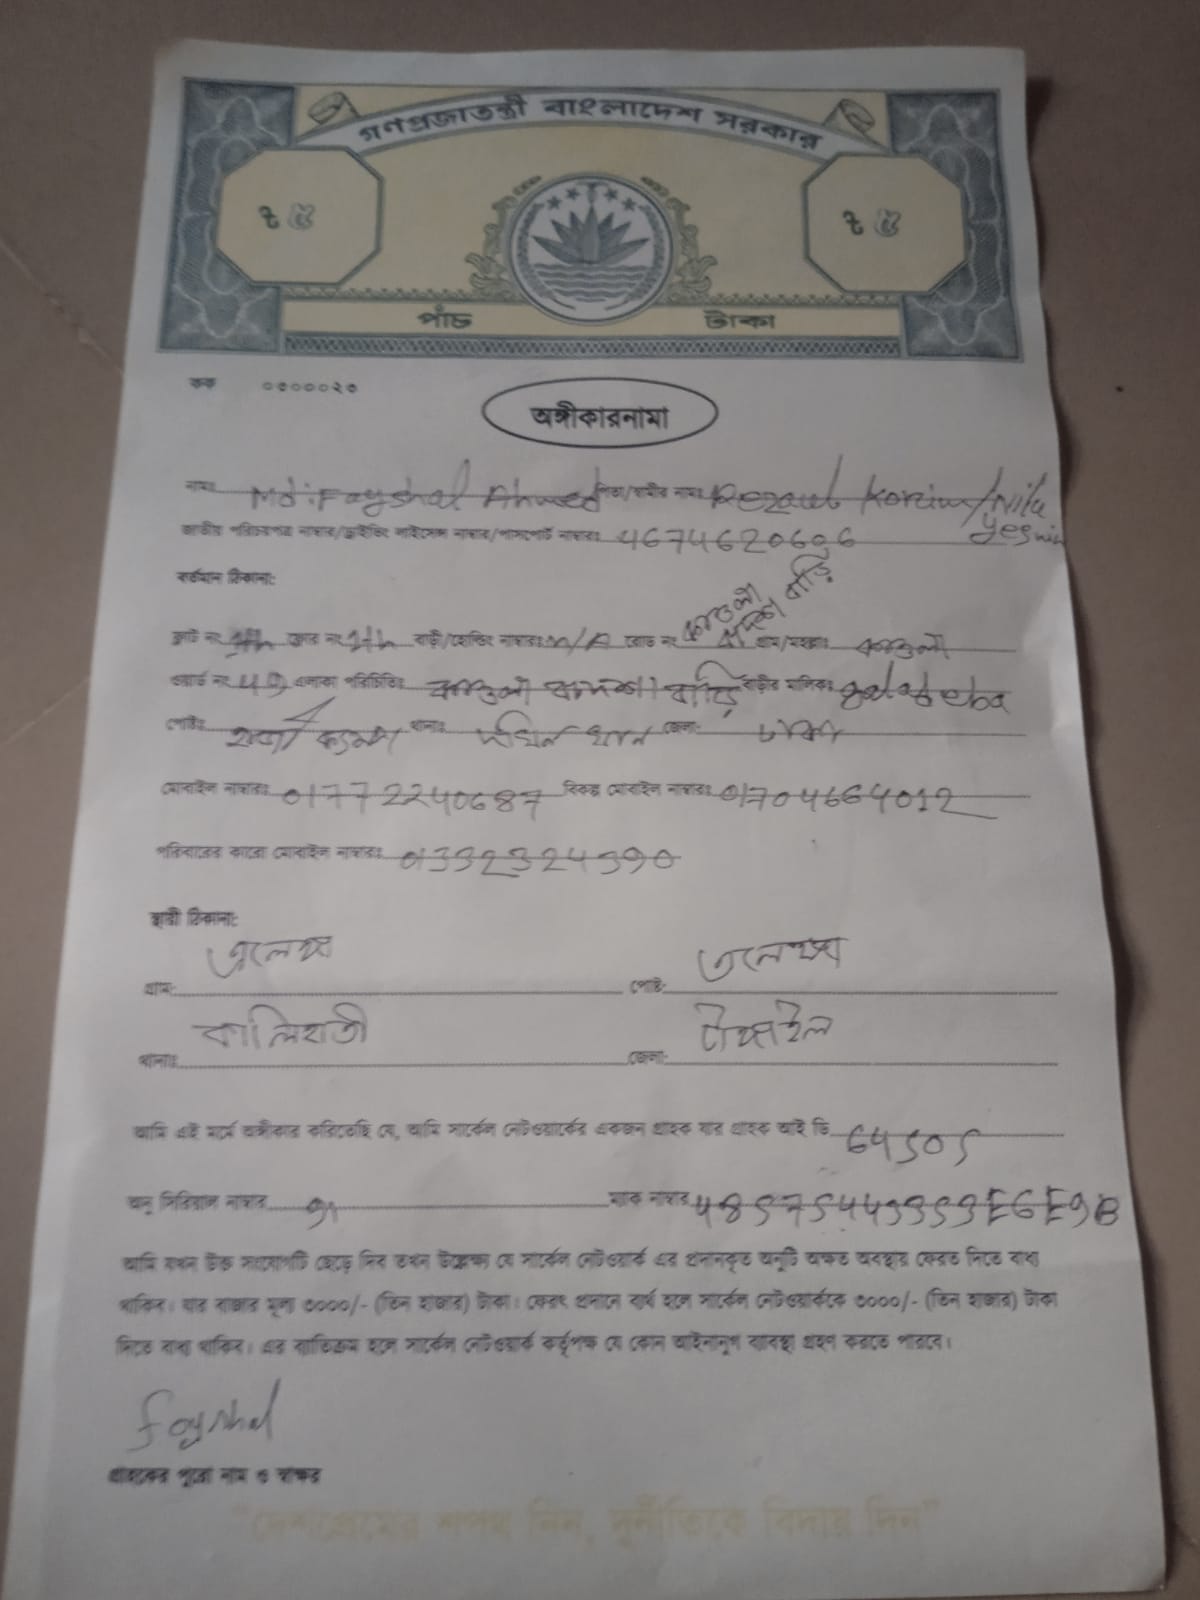 গণপ্রজাতন্ত্রী বাংলাদেশ সরকার
৳ ৫ ৳ ৫
পাঁচ টাকা
কক ০৩০০০২৩
অঙ্গীকারনামা
নাম: Md: Fayshal Ahmed পিতা/স্বামীর নাম: Rezaul Korim/Nila
Yesmin
জাতীয় পরিচয়পত্র নাম্বার/ড্রাইভিং লাইসেন্স নাম্বার/পাসপোর্ট নাম্বারঃ 4674620606
বর্তমান ঠিকানা:
ফ্লাট নং ফ্লোর নং 1th বাড়ী/হোল্ডিং নাম্বারঃ N/A রোড নং বাড়ি গ্রাম/মহল্লাঃ
ওয়ার্ড নং এলাকা পরিচিতিঃ বাড়ি বাড়ীর মালিকঃ
পোষ্টঃ হাজী ক্যাম্প থানাঃ দক্ষিন খান জেলা: ঢাকা
মোবাইল নাম্বারঃ 01772240687 বিকল্প মোবাইল নাম্বারঃ 01704664012
পরিবারের কারো মোবাইল নাম্বারঃ 01332324390
স্থায়ী ঠিকানা:
গ্রাম: এলেঙ্গা পোষ্ট: এলেঙ্গা
থানাঃ কালিহাতী জেলা: টাঙ্গাইল
আমি এই মর্মে অঙ্গীকার করিতেছি যে, আমি সার্কেল নেটওয়ার্কের একজন গ্রাহক যার গ্রাহক আই ডি 64505
অনু সিরিয়াল নাম্বার ম্যাক নাম্বার 48575449353E6E9B
আমি যখন উক্ত সংযোগটি ছেড়ে দিব তখন উল্লেক্ষ্য যে সার্কেল নেটওয়ার্ক এর প্রদানকৃত অনুটি অক্ষত অবস্থায় ফেরত দিতে বাধ্য
থাকিব। যার বাজার মূল্য ৩০০০/- (তিন হাজার) টাকা। ফেরৎ প্রদানে ব্যর্থ হলে সার্কেল নেটওয়ার্ককে ৩০০০/- (তিন হাজার) টাকা
দিতে বাধ্য থাকিব। এর ব্যতিক্রম হলে সার্কেল নেটওয়ার্ক কর্তৃপক্ষ যে কোন আইনানুগ ব্যবস্থা গ্রহণ করতে পারবে।
Fayshal
গ্রাহকের পুরো নাম ও স্বাক্ষর
"দেশপ্রেমের শপথ নিন, দুর্নীতিকে বিদায় দিন"